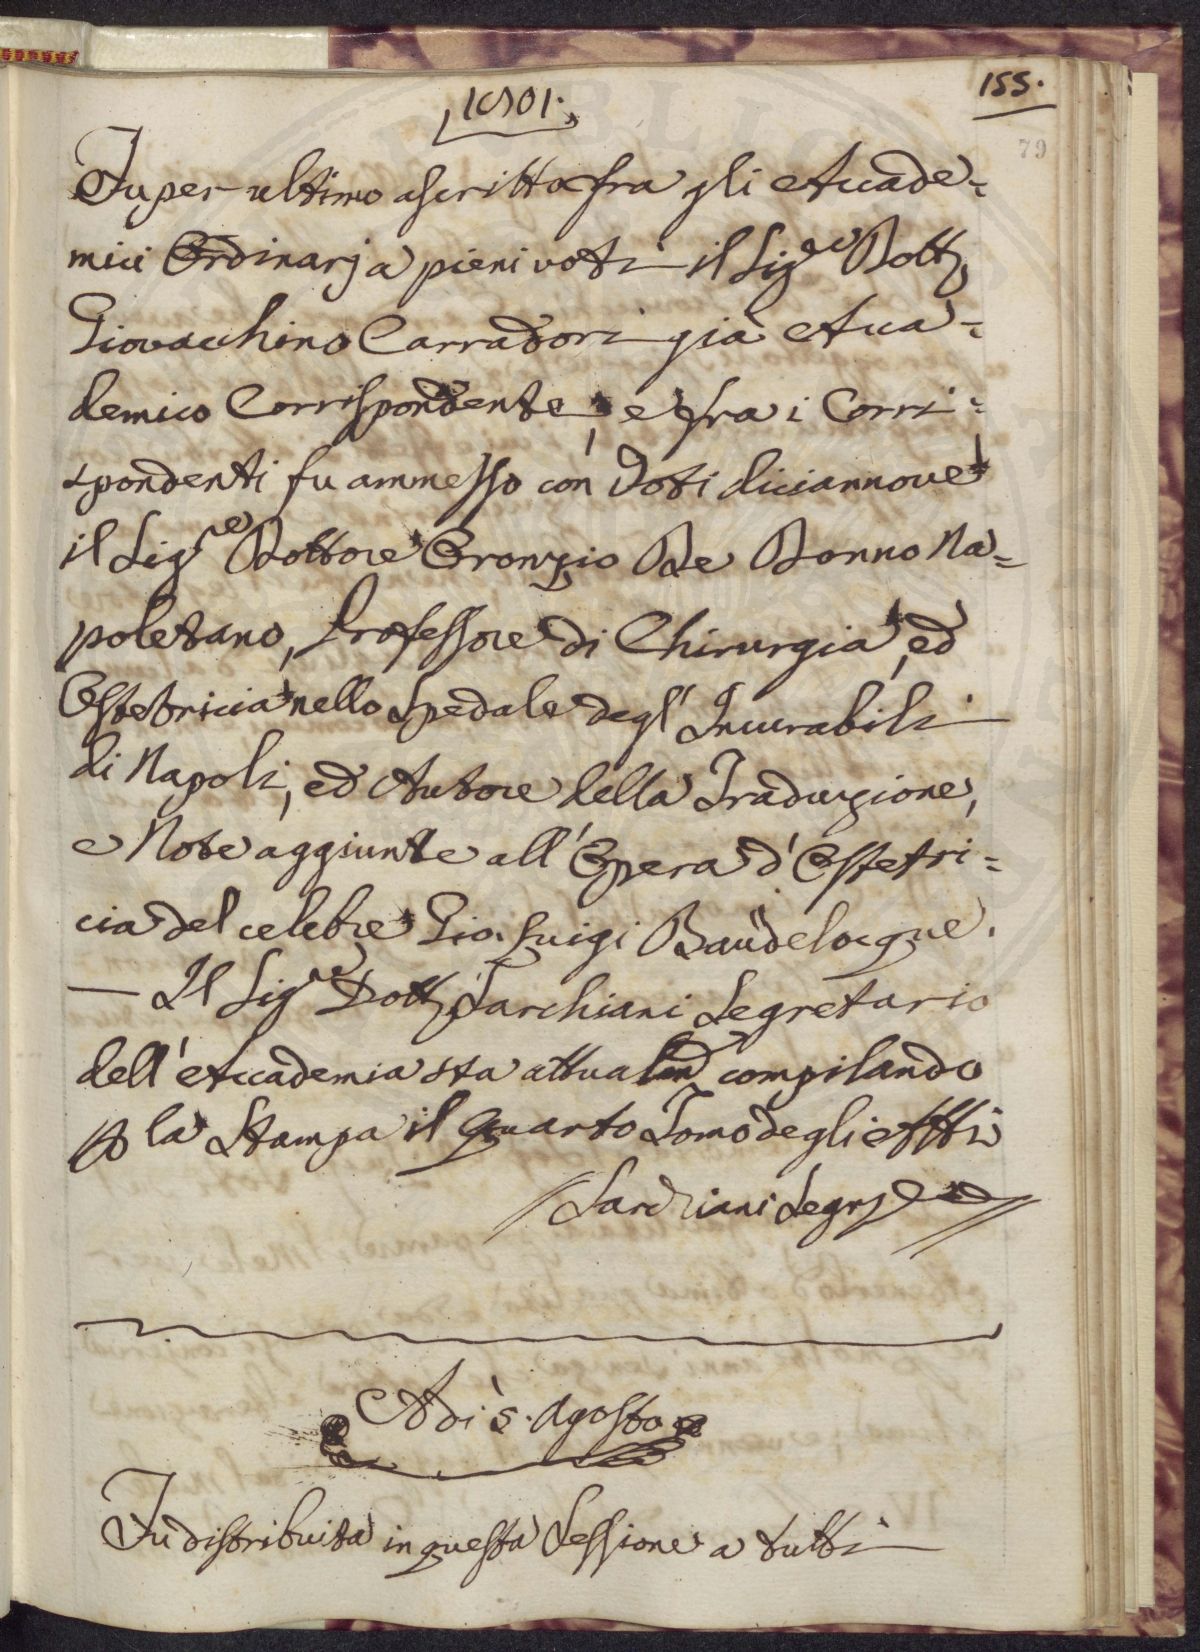 1801.
155.
79
Fu per ultimo ascritto fra gli Accade=
mici Ordinarj a pieni voti il Sig.re Dott.
Giovacchino Carradori già Acca=
demico Corrispondente, e fra i Corri=
spondenti fu ammesso con Voti diciannove
il Sig.re Dottore Oronzio De Donno Na=
poletano, Professore di Chirurgia, ed
Ostetricia nello Spedale degl' Incurabili
di Napoli, ed Autore della Traduzione,
e Note aggiunte all' Opera d' Ostetri=
cia del celebre Gio. Luigi Baudelocque.
— Il Sig.re Dott. Sarchiani Segretario
dell' Accademia sta attualm. compilando
p la Stampa il Quarto Tomo degli Atti
Sarchiani Seg.
Adì 5. Agosto
Fu distribuita in questa Sessione a tutti